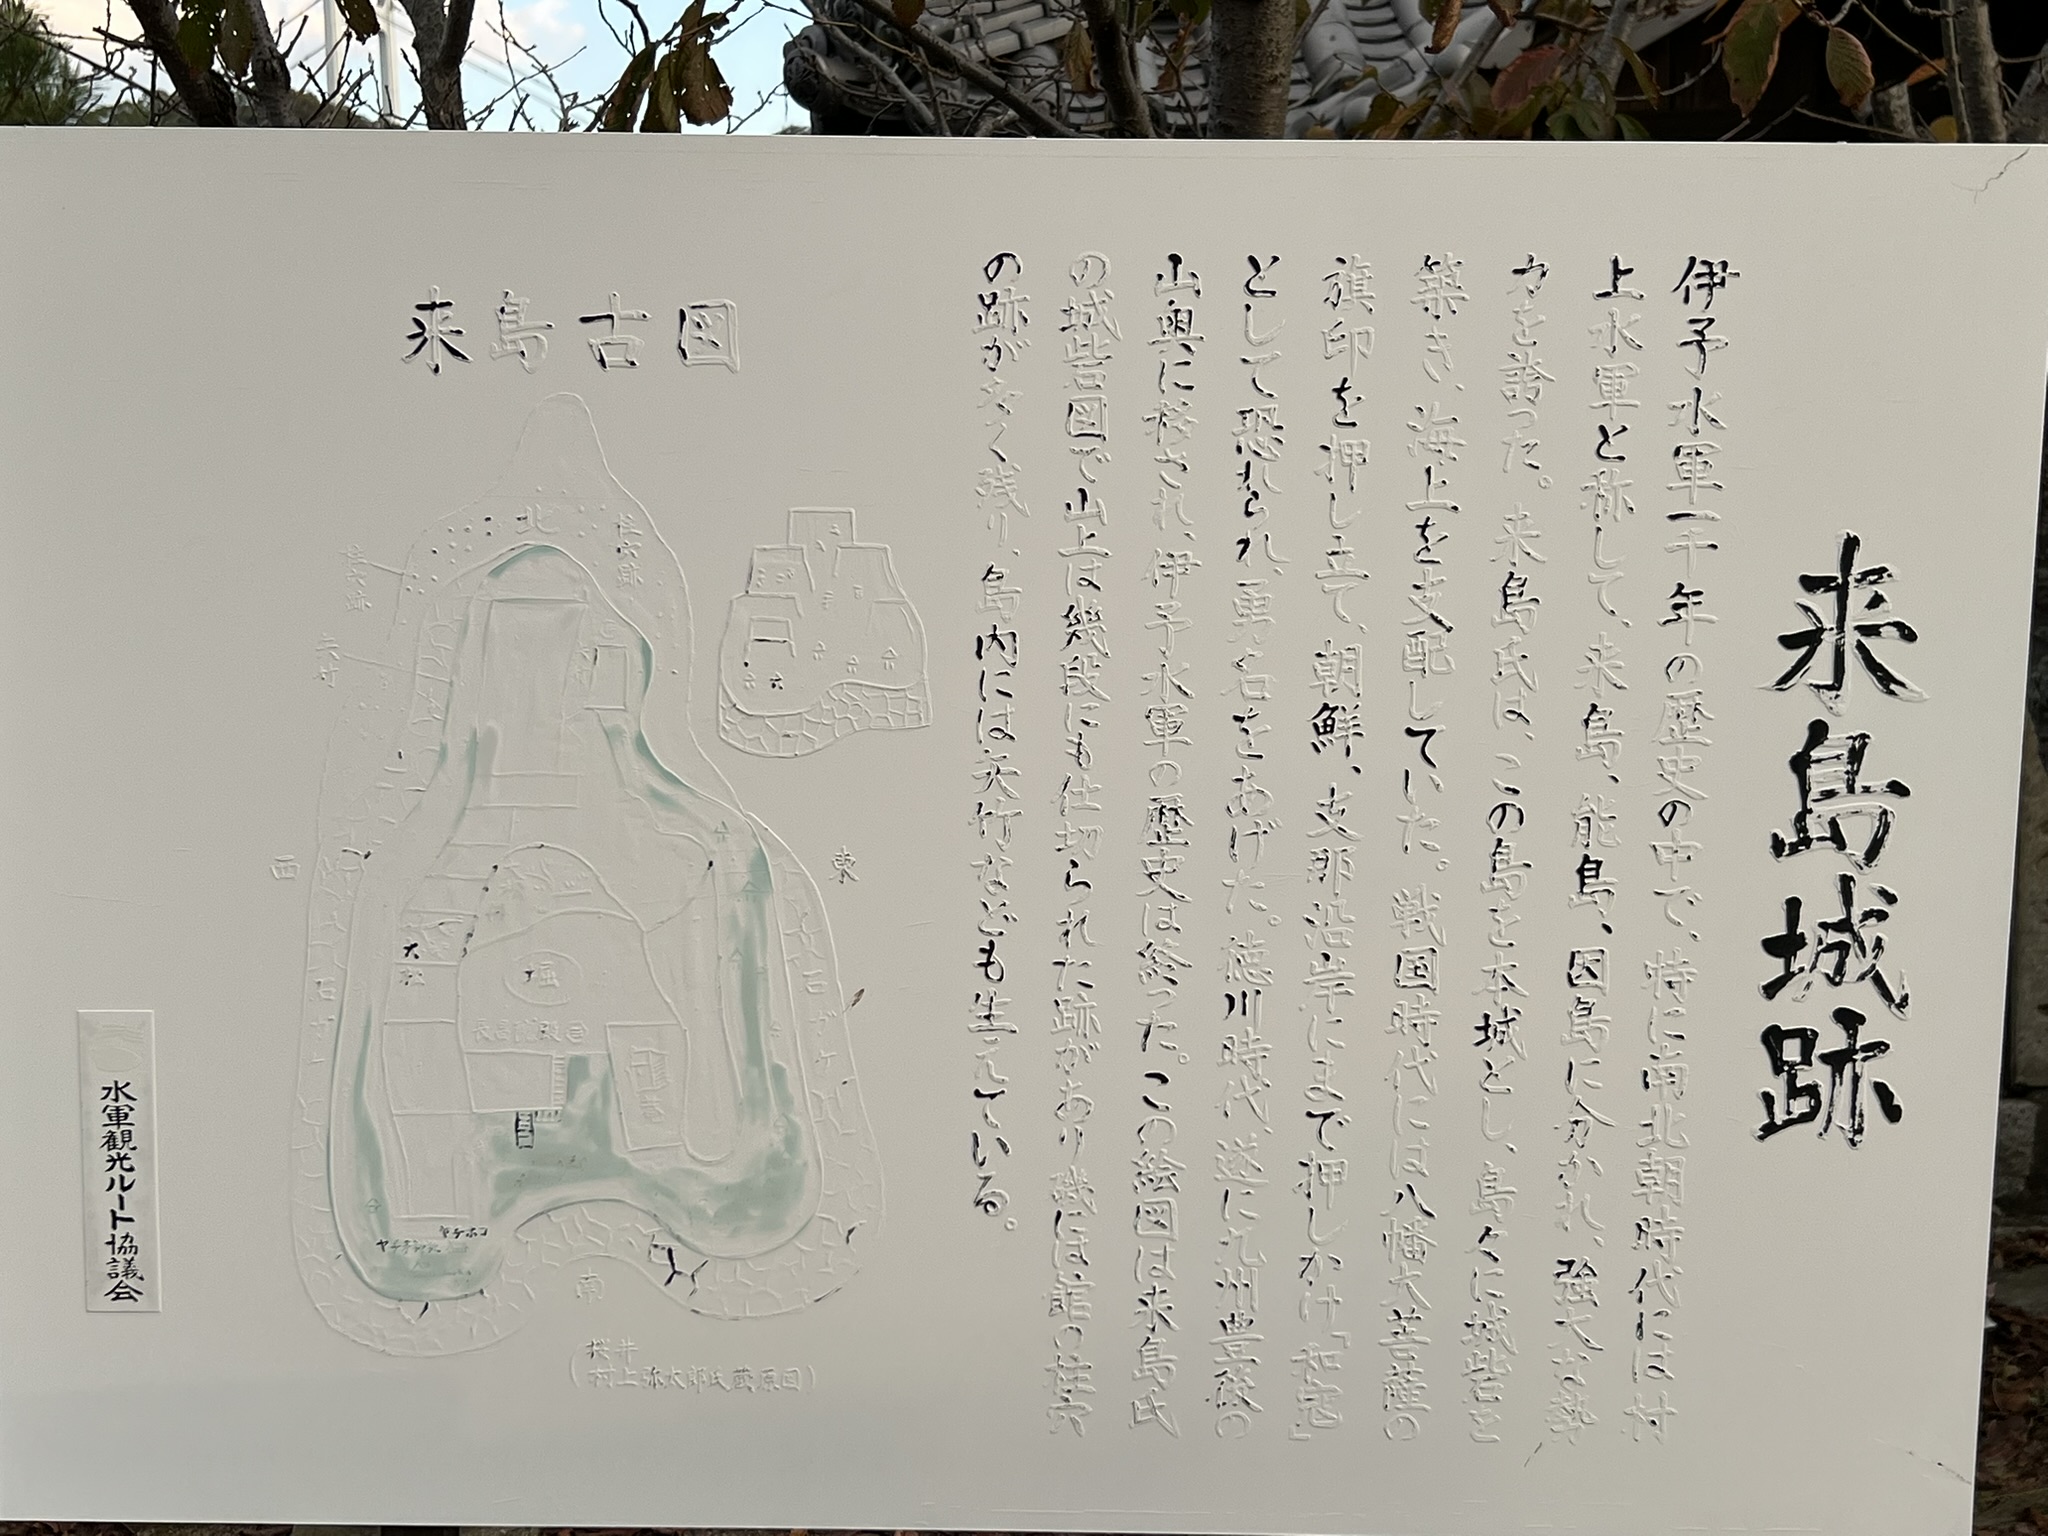 来島城跡
伊予水軍一千年の歴史の中で、特に南北朝時代には村
上水軍と称して、来島、能島、因島に分かれ、強大な勢
力を誇った。来島氏は、この島を本城とし、島々に城砦を
築き、海上を支配していた。戦国時代には八幡大菩薩の
旗印を押し立て、朝鮮、支那沿岸にまで押しかけ「和寇」
として恐れられ、勇名をあげた。徳川時代、遂に九州豊後の
山奥に移され、伊予水軍の歴史は終った。この絵図は来島氏
の城砦図で山上は幾段にも仕切られた跡があり磯には館の柱穴
の跡が多く残り、島内には矢竹なども生えている。
来島古図
北
柱穴跡
柱穴跡
矢竹
東
西
大松
堀
石ガケ
石ガケ
ヤチホコ
南
桜井
(村上弥太郎氏蔵原図)
水軍観光ルート協議会